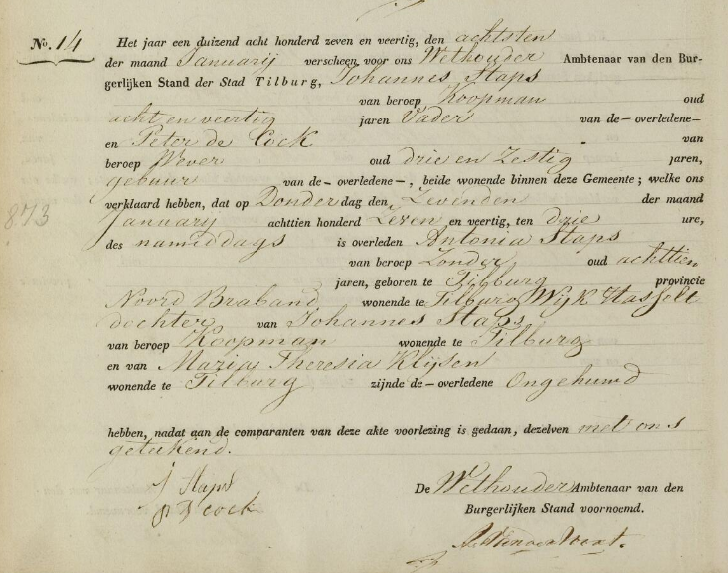 No. 14
Het jaar een duizend acht honderd zeven en veertig, den achtsten
der maand Januarij verscheen voor ons Wethouder Ambtenaar van den Bur-
gerlijken Stand der Stad Tilburg, Johannes Staps
van beroep Koopman oud
acht en veertig jaren Vader van de — overledene —
en Peter de Cock van
beroep Wever oud drie en Zestig jaren,
gebuur van de — overledene —, beide wonende binnen deze Gemeente; welke ons
verklaard hebben, dat op Donderdag den Zevenden der maand
873
January achttien honderd Zeven en veertig, ten drie ure,
des namiddags is overleden Antonia Staps
van beroep Zonder oud achttien
jaren, geboren te Tilburg provincie
Noord Braband wonende te Tilburg Wijk Hasselt
dochter van Johannes Staps
van beroep Koopman wonende te Tilburg
en van Maria Theresia Klijsen
wonende te Tilburg zijnde de — overledene Ongehuwd
hebben, nadat aan de comparanten van deze akte voorlezing is gedaan, dezelven met ons
getekend.
J Staps
P D cock
De Wethouder Ambtenaar van den
Burgerlijken Stand voornoemd.